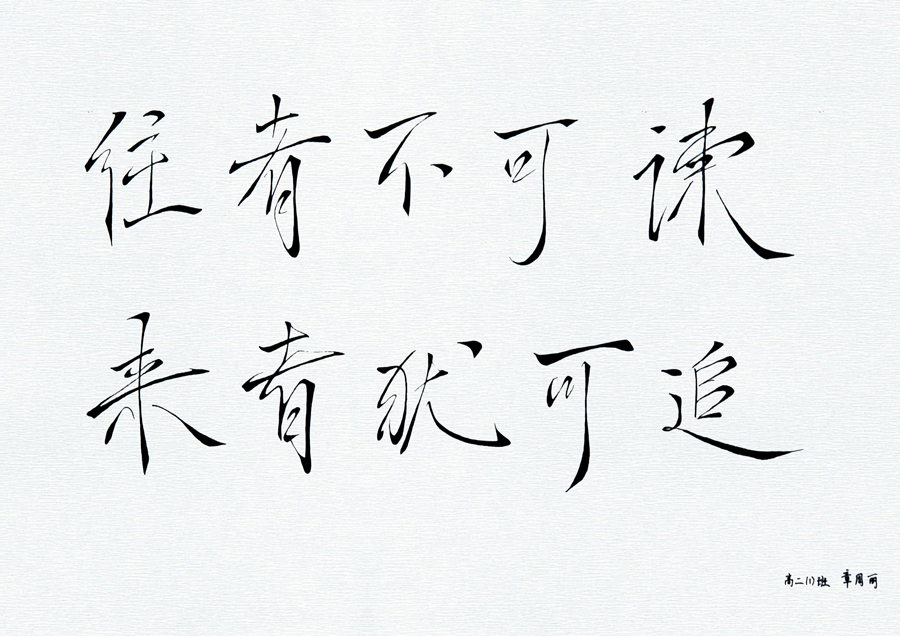 往者不可谏
来者犹可追
高二(1)班 章周丽